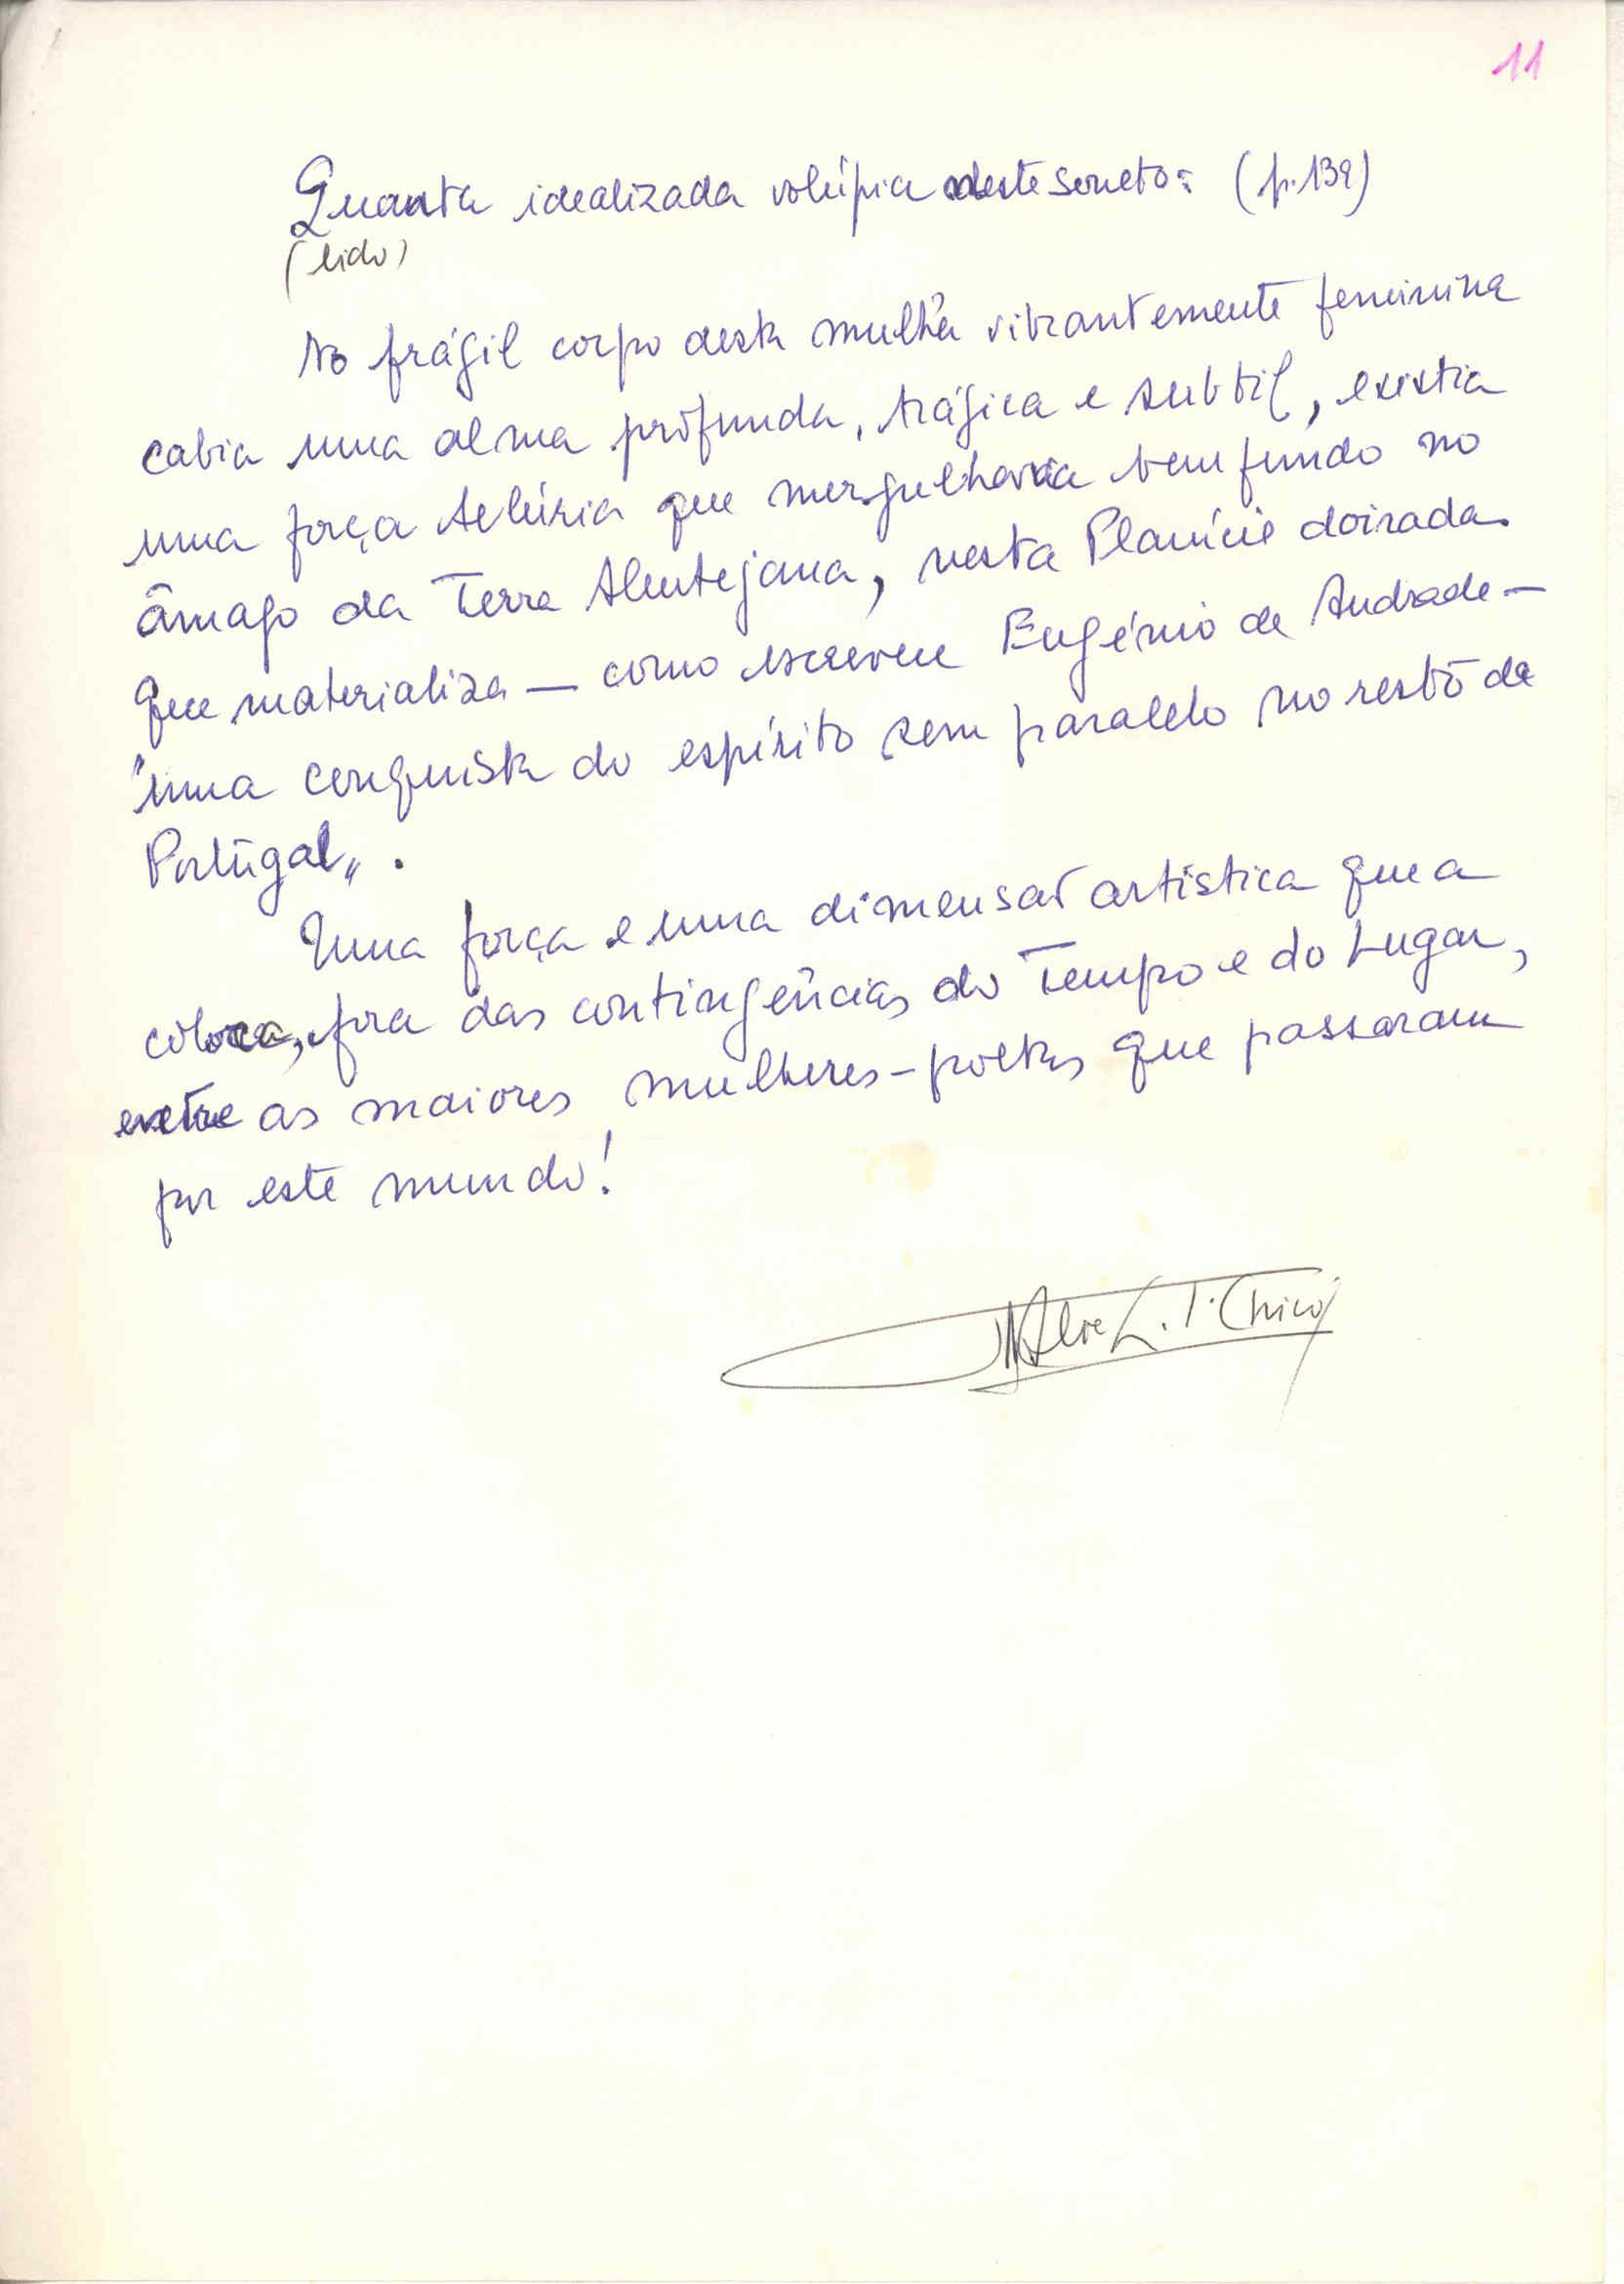 11
Quanta idealizada volúpia neste soneto: (p.139)
(lido)
No frágil corpo desta mulher vibrantemente feminina
cabia uma alma profunda, trágica e subtil, existia
uma força telúria que mergulhava bem fundo no
âmago da Terra Alentejana, nesta Planície doirada
que materializa — como escreveu Eugénio de Andrade —
"uma conquista do espírito sem paralelo no resto de
Portugal".
Uma força e uma dimensão artística que a
coloca, fora das contingências do Tempo e do Lugar,
entre as maiores mulheres-poetas que passaram
por este mundo!
L. T. Chicó